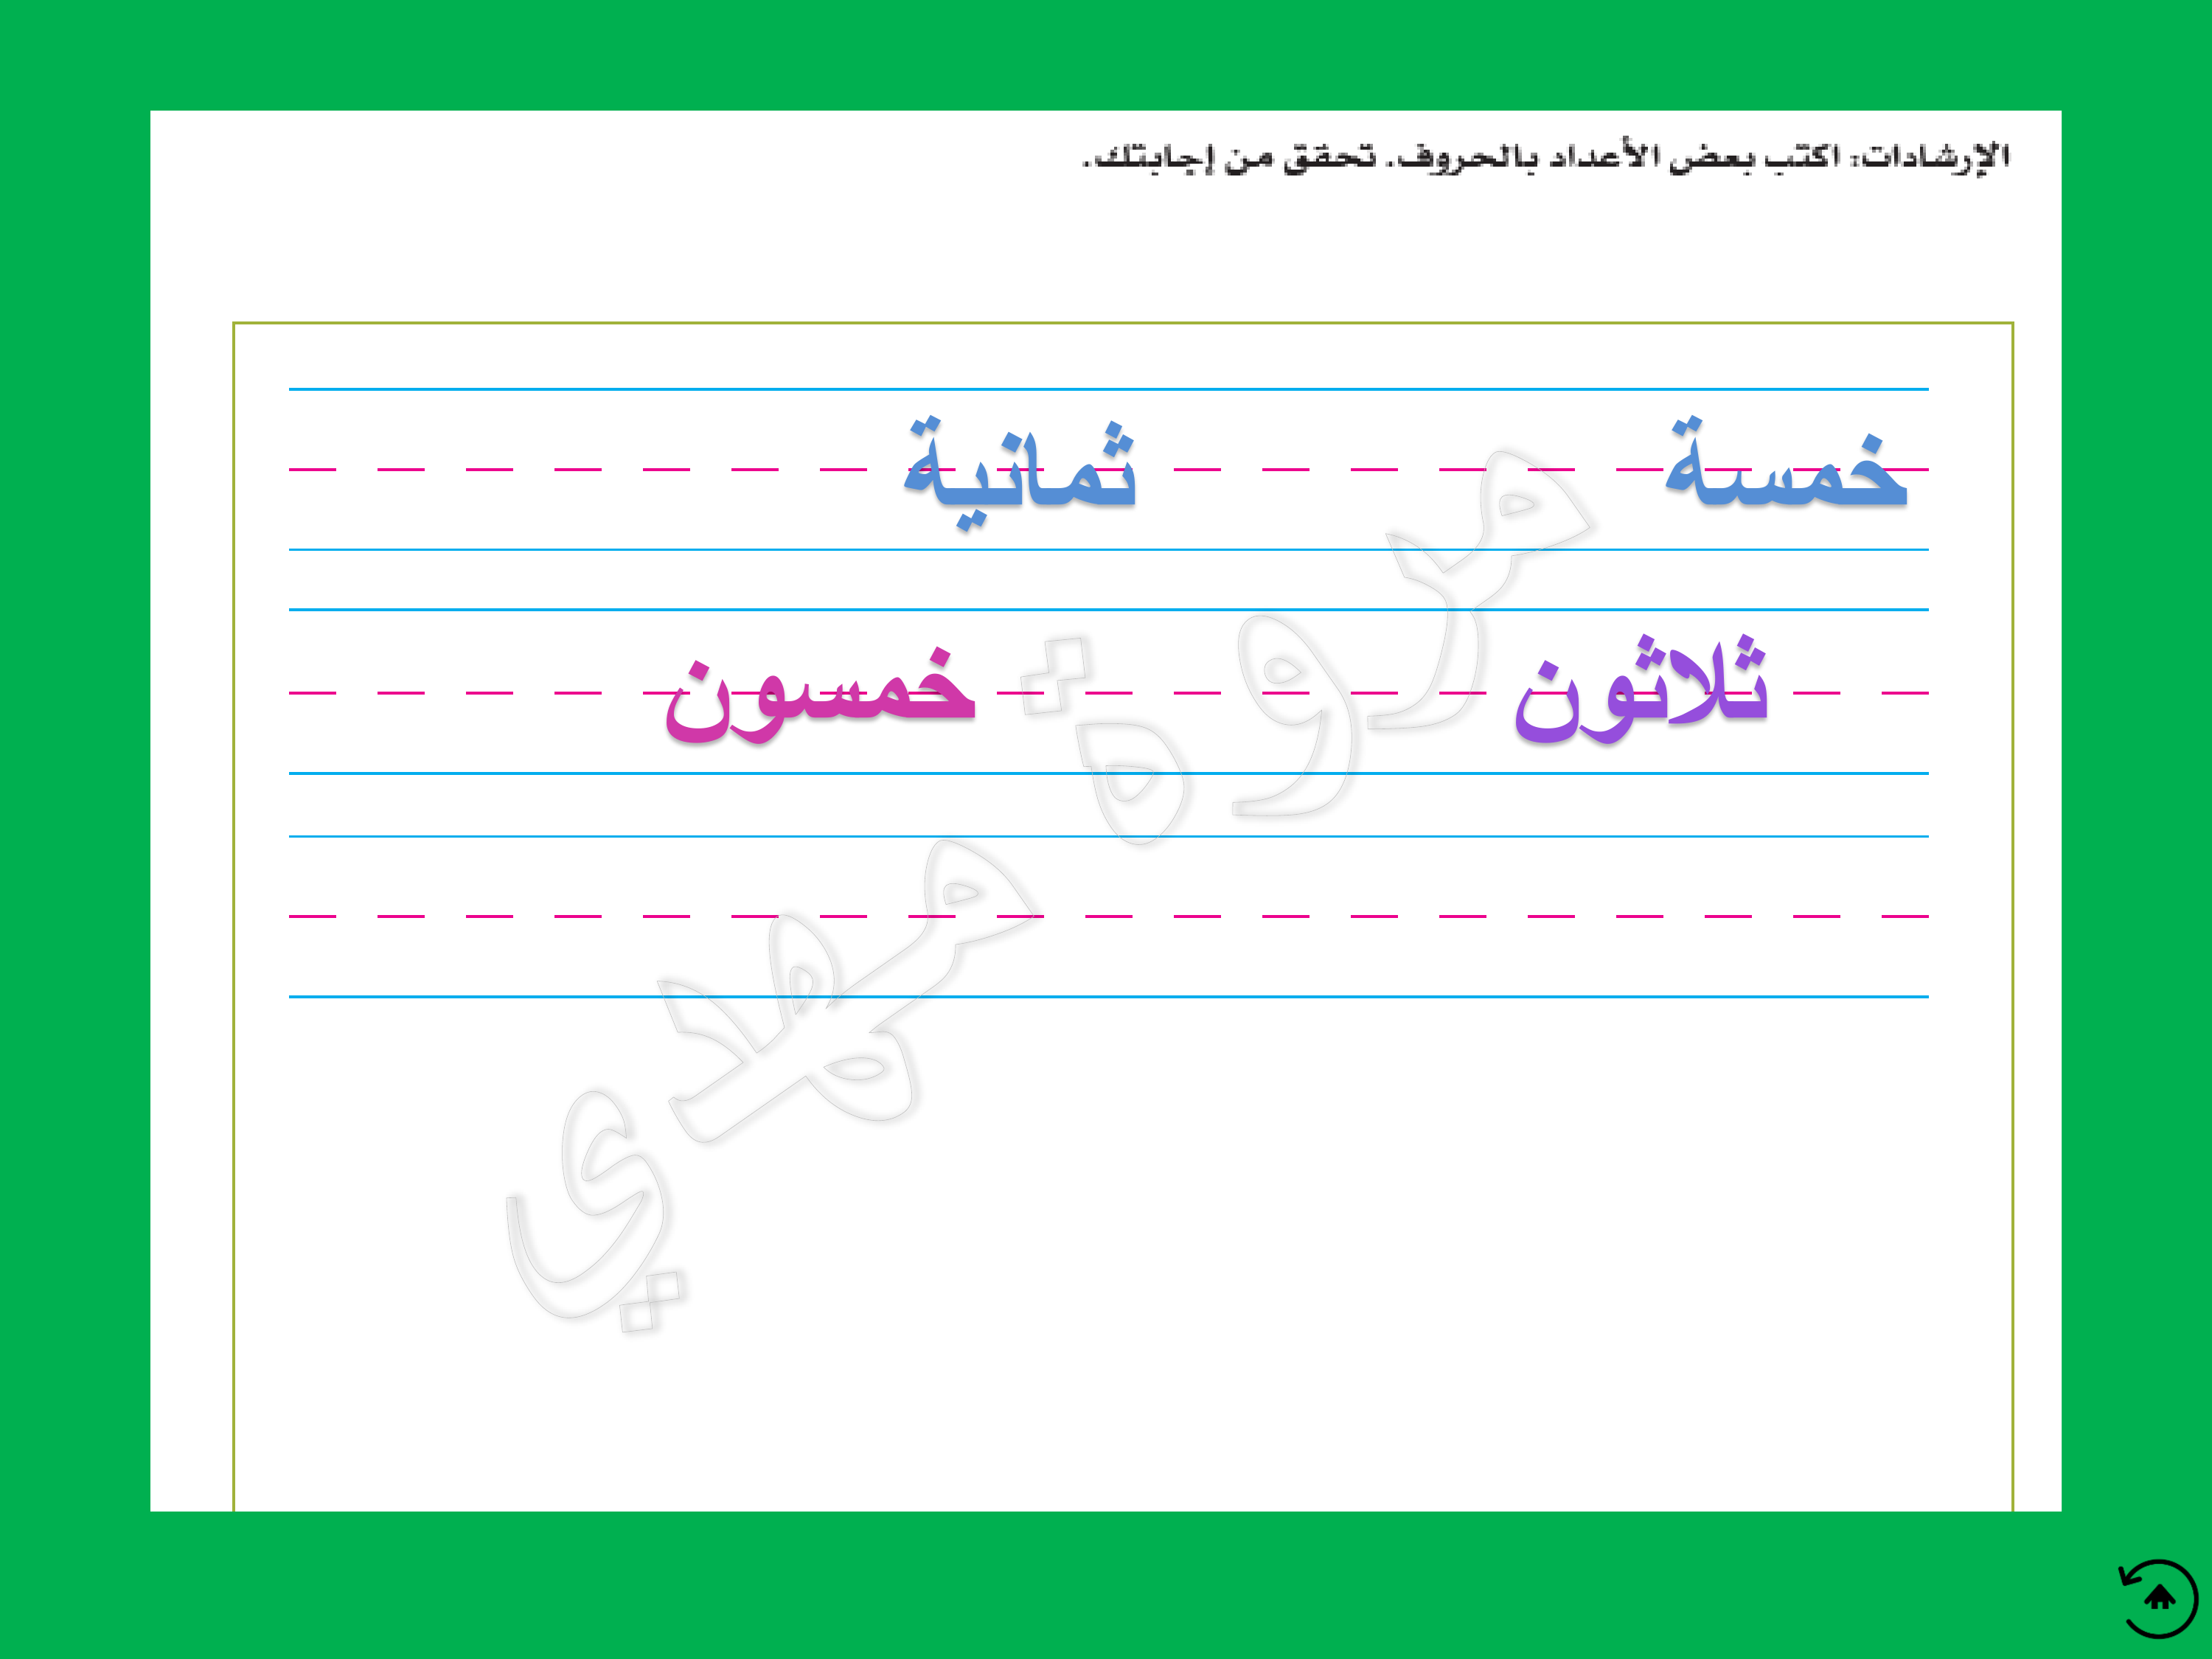 الإرشادات: اكتب بعض الأعداد بالحروف. تحقق من إجابتك.
خمسة ثمانية
ثلاثون خمسون
مروة مهدي